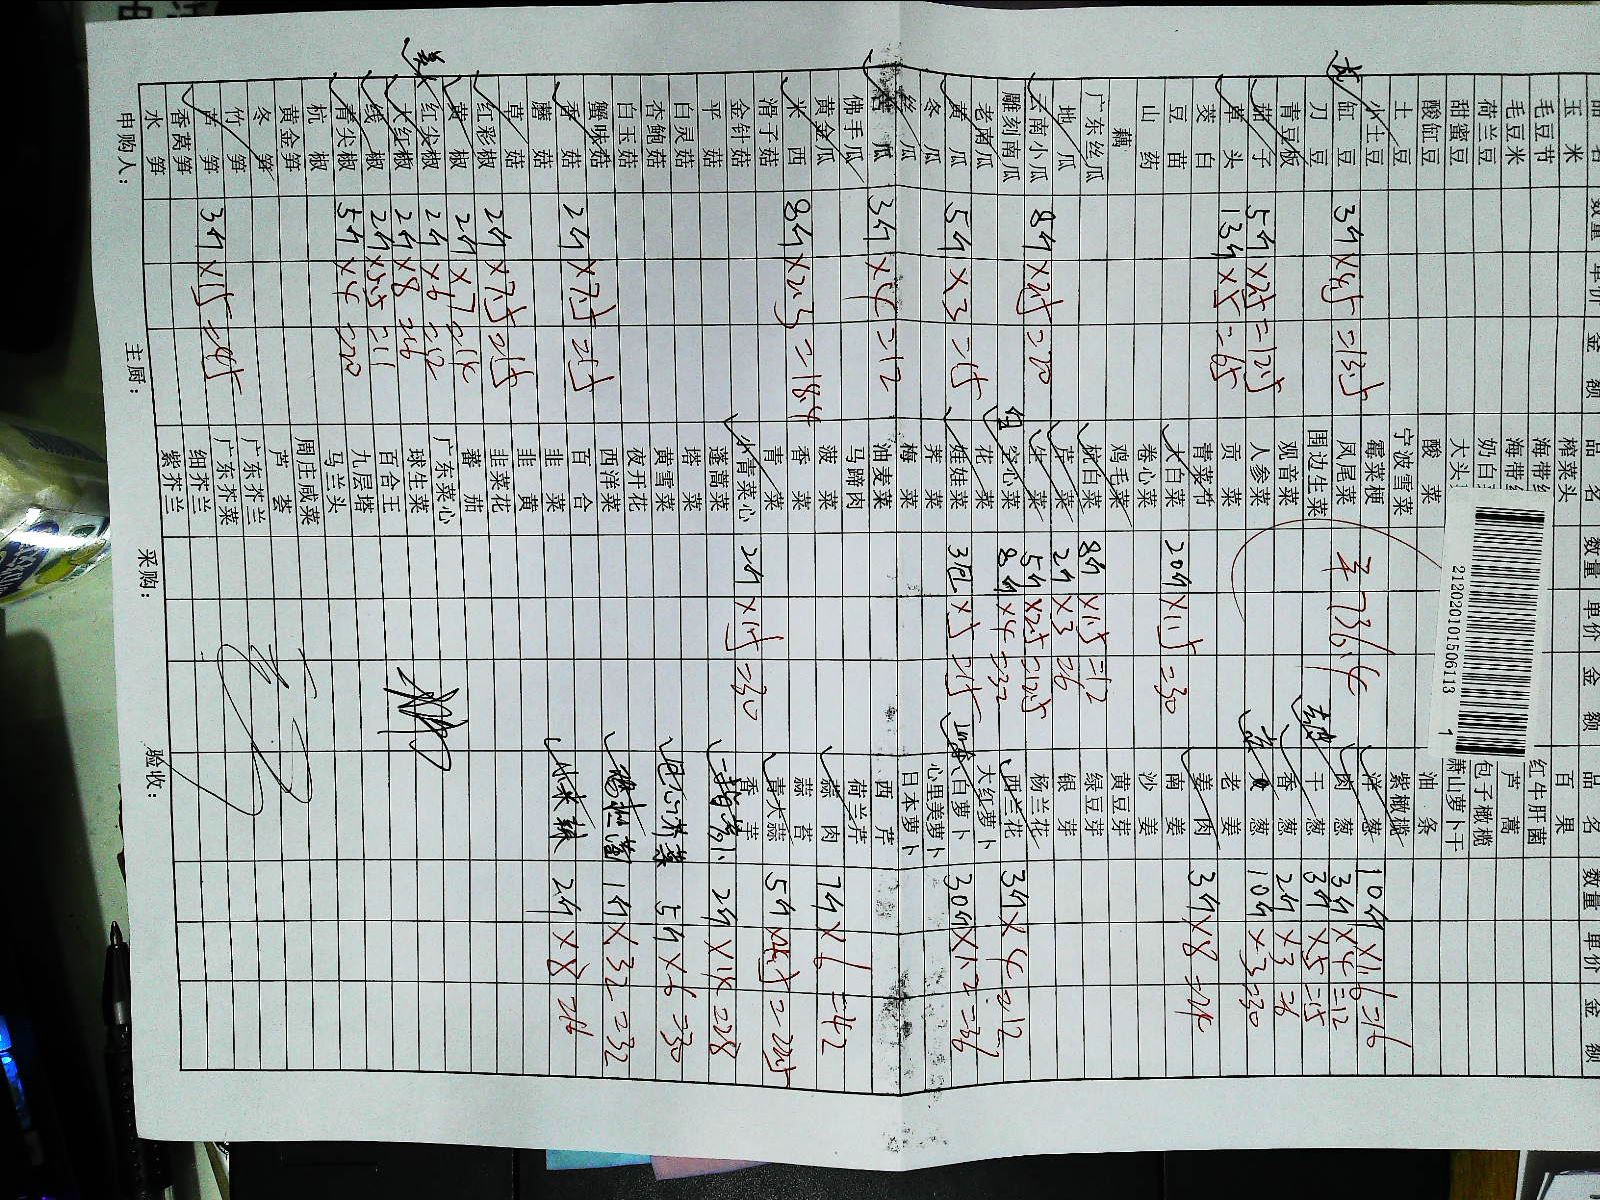 品名 数量 单价 金额
玉米
毛豆节
毛豆米
荷兰豆
甜蜜豆
酸缸豆
土豆
小土豆
缸豆 3斤×4.5=13.5
刀豆
青豆板
茄子 5斤×2.5=12.5
草头 13斤×5=65
茭白
豆苗
山药
藕
广东丝瓜
地瓜
云南小瓜 8斤×2.5=20
雕刻南瓜
老南瓜
黄瓜 5斤×3=15
冬瓜
丝瓜
苦瓜 3斤×4=12
佛手瓜
黄金瓜
米西 8斤×2.3=18.4
滑子菇
金针菇
平菇
白灵菇
杏鲍菇
白玉菇
蟹味菇
香菇 2斤×7.5=15
蘑菇
草菇
红彩椒 2斤×7.5=15
黄椒 2斤×7=14
红尖椒 2斤×6=12
大红椒 2斤×8=16
线椒 2斤×5.5=11
青尖椒 5斤×4=20
杭椒
黄金笋
冬笋
竹笋
芦笋 3斤×15=45
香莴笋
水笋
品名 数量 单价 金额
榨菜头
海带
海带
奶白
大头
酸菜
宁波雪菜
霉菜梗
凤尾菜
围边生菜
观音菜
人参菜
贡菜
青菜节
大白菜 20斤×1.5=30
卷心菜
鸡毛菜
杭白菜 8斤×1.5=12
芹菜 2斤×3=6
生菜 5斤×2.5=12.5
空心菜 8斤×4=32
花菜
娃娃菜 3包×5=15
荠菜
梅菜
油麦菜
马蹄肉
菠菜
香菜
青菜
小青菜心 2斤×15=30
蓬蒿菜
塔菜
黄雪菜
夜开花
西洋菜
百合
韭菜
韭黄
韭菜花
蕃茄
广东菜心
球生菜
百合王
九层塔
马兰头
周庄咸菜
芦荟
广东芥兰
广东芥菜
细芥兰
紫芥兰
736.4
212020101506113 1
品名 数量 单价 金额
百果
红牛肝菌
芦蒿
包子橄榄
萧山萝卜干
油条
紫橄榄
洋葱 10斤×1.6=16
肉葱 3斤×4=12
干葱 3斤×5=15
香葱 2斤×3=6
大葱 10斤×3=30
老姜
姜肉 3斤×8=24
南姜
沙姜
黄豆芽
绿豆芽
银芽
杨兰花
西兰花 3斤×4=12
大红萝卜
白萝卜 30斤×1.2=36
心里美萝卜
日本萝卜
西芹
荷兰芹
蒜肉 7斤×6=42
蒜苔
青大蒜 5斤×4.5=22.5
香芋
2斤×14=28
5斤×6=30
1斤×32=32
小米辣 2斤×8=16
申购人：
主厨：
采购：
验收：